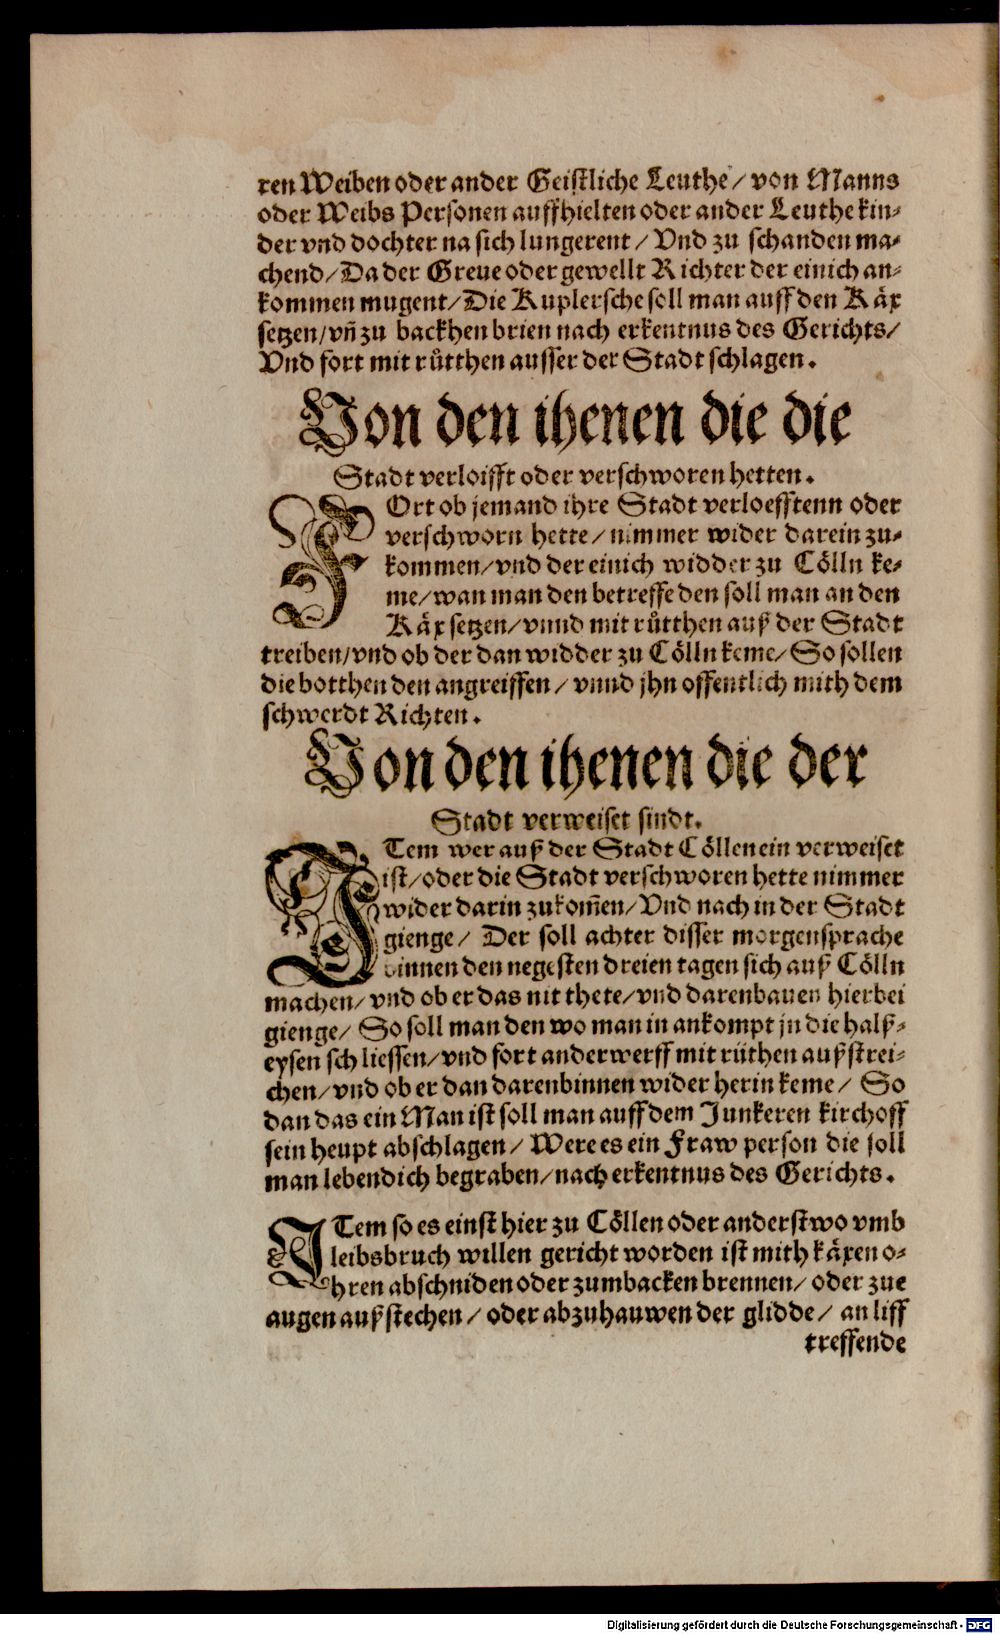 ren Weiben oder ander Geistliche Leuthe / von Manns
oder Weibs Personen auffhielten oder ander Leuthe kin⸗
der vnd dochter na sich lungerent / Vnd zu schanden ma⸗
chend / Da der Greue oder gewellt Richter der einich an⸗
kommen mugent / Die Kuplersche soll man auff den Käx
setzen / vñ zu backhen brien nach erkentnus des Gerichts /
Vnd fort mit růtthen ausser der Stadt schlagen.
Von den ihenen die die
Stadt verloifft oder verschworen hetten.
FOrt ob jemand ihre Stadt verloefftenn oder
verschworn hette / nimmer wider darein zu⸗
kommen / vnd der einich widder zu Cölln ke⸗
me / wan man den betreffe den soll man an den
Käx setzen / vnnd mit růtthen auß der Stadt
treiben / vnd ob der dan widder zu Cölln keme / So sollen
die botthen den angreiffen / vnnd jhn offentlich mith dem
schwerdt Richten.
Von den ihenen die der
Stadt verweiset sindt.
ITem wer auß der Stadt Cöllen ein verweiset
ist / oder die Stadt verschworen hette nimmer
wider darin zukom̃en / Vnd nach in der Stadt
gienge / Der soll achter disser morgensprache
binnen den negesten dreien tagen sich auß Cölln
machen / vnd ob er das nit thete / vnd darenbauen hierbei
gienge / So soll man den wo man in ankompt jn die halß⸗
eysen schliessen / vnd fort anderwerff mit rüthen außstrei⸗
chen / vnd ob er dan darenbinnen wider herin keme / So
dan das ein Man ist soll man auff dem Junkeren kirchoff
sein heupt abschlagen / Were es ein Fraw person die soll
man lebendich begraben / nach erkentnus des Gerichts.
ITem so es einst hier zu Cöllen oder anderstwo vmb
leibsbruch willen gericht worden ist mith käxen o⸗
hren abschniden oder zumbacken brennen / oder zue
augen außstechen / oder abzuhauwen der glidde / an liff
treffende
Digitalisierung gefördert durch die Deutsche Forschungsgemeinschaft - DFG